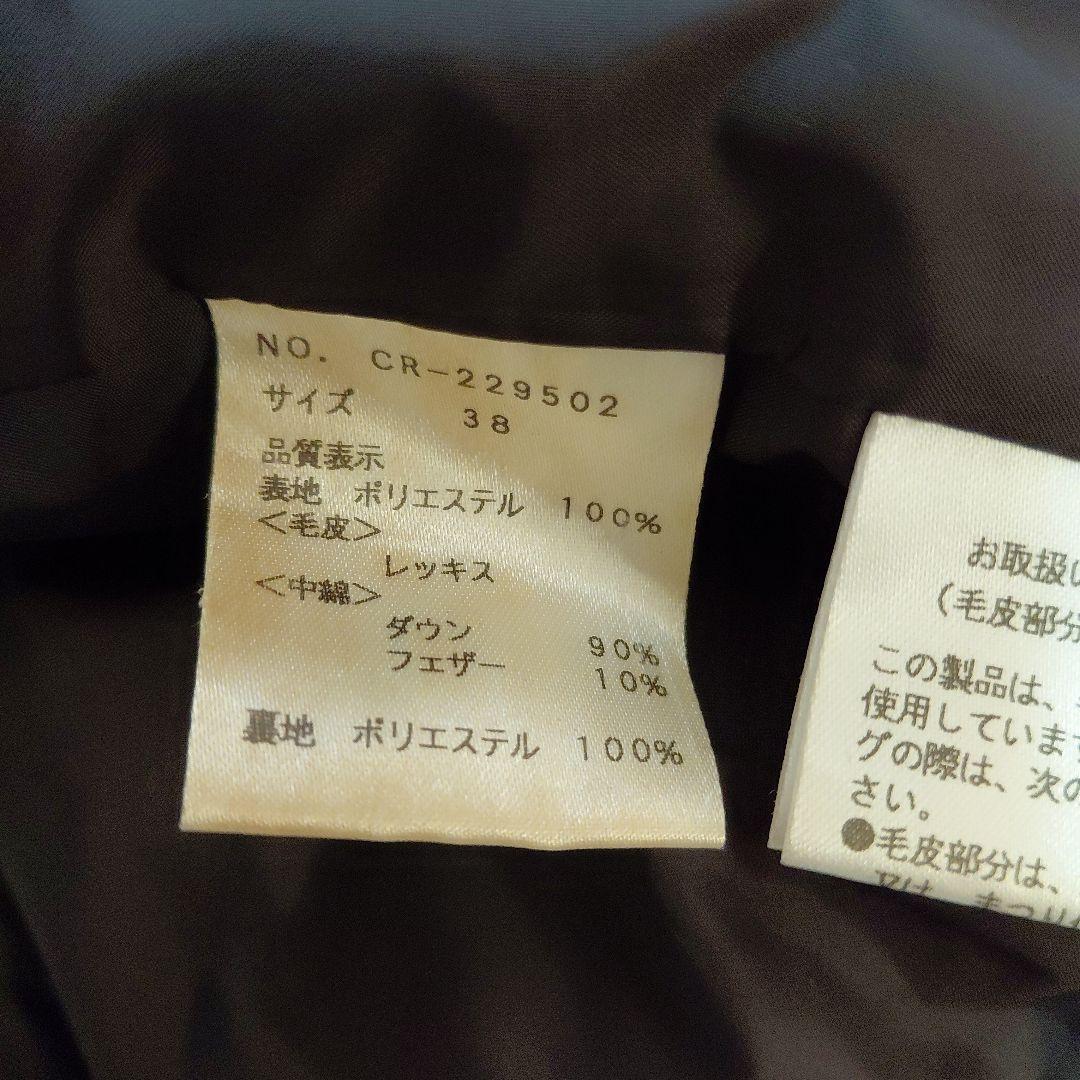 NO. CR-229502
サイズ 38
品質表示
表地 ポリエステル 100%
<毛皮>
レッキス
<中綿>
ダウン 90%
フェザー 10%
裏地 ポリエステル 100%
お取扱い
(毛皮部分
この製品は、
使用しています
グの際は、次の
さい。
●毛皮部分は、